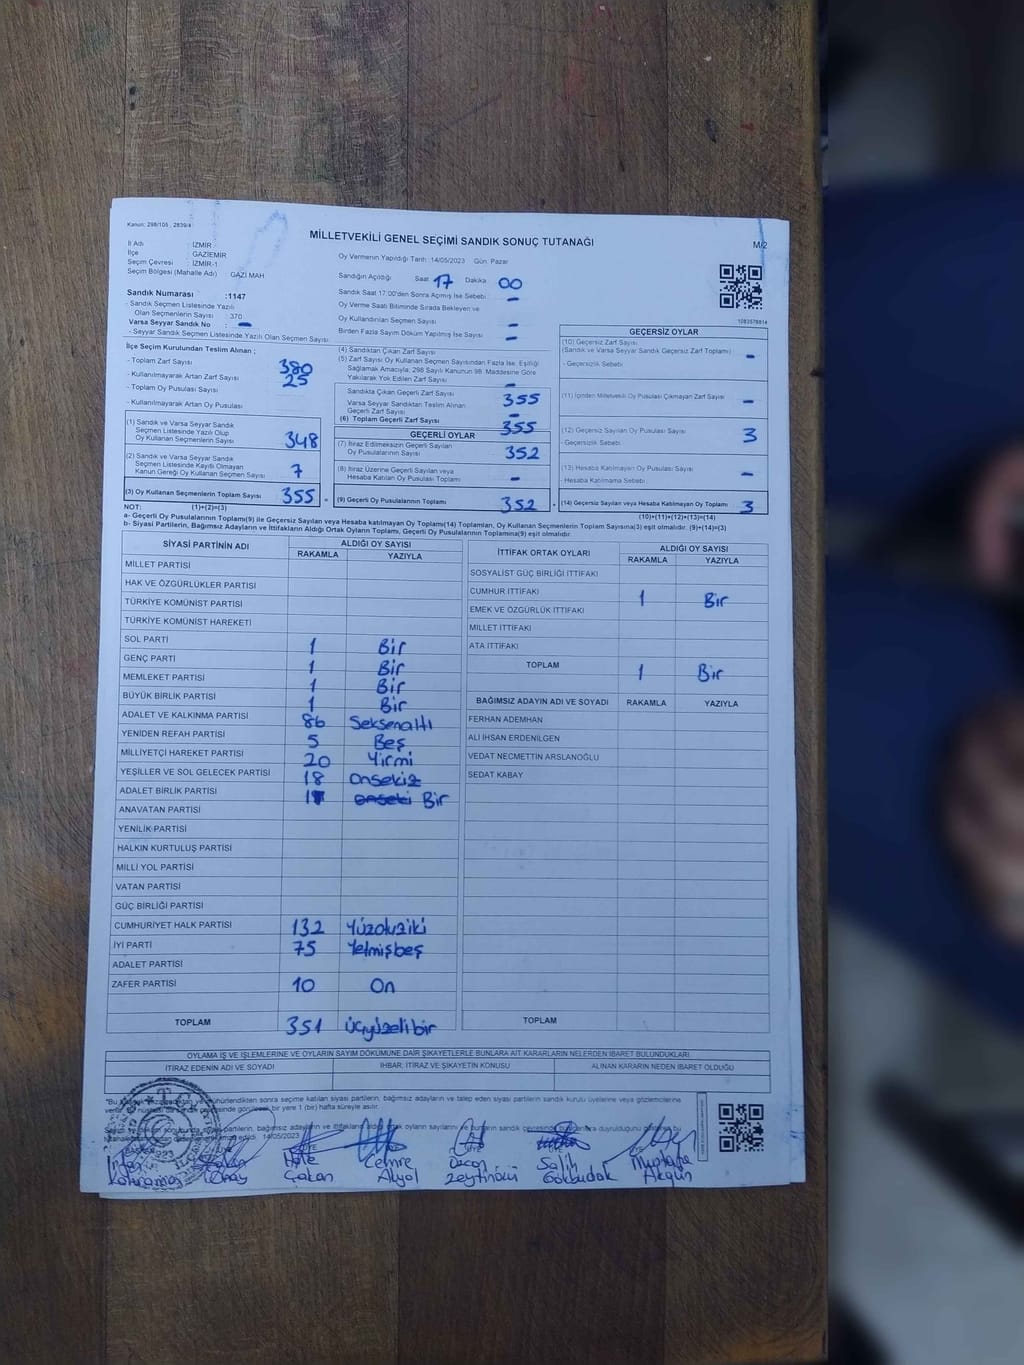 Kanun: 298/105 , 2839/4
MİLLETVEKİLİ GENEL SEÇİMİ SANDIK SONUÇ TUTANAĞI
M/2
İl Adı : İZMİR
İlçe : GAZİEMİR
Seçim Çevresi : İZMİR-1
Seçim Bölgesi (Mahalle Adı) : GAZİ MAH
Sandık Numarası :1147
- Sandık Seçmen Listesinde Yazılı
Olan Seçmenlerin Sayısı : 370
Varsa Seyyar Sandık No : -
- Seyyar Sandık Seçmen Listesinde Yazılı Olan Seçmen Sayısı
Oy Vermenin Yapıldığı Tarih :14/05/2023 Gün: Pazar
Sandığın Açıldığı Saat 17 Dakika 00
Sandık Saat 17:00'den Sonra Açılmış İse Sebebi -
Oy Verme Saati Bitiminde Sırada Bekleyen ve
Oy Kullandırılan Seçmen Sayısı -
Birden Fazla Sayım Döküm Yapılmış İse Sayısı -
1083578814
İlçe Seçim Kurulundan Teslim Alınan ;
- Toplam Zarf Sayısı 380
- Kullanılmayarak Artan Zarf Sayısı 25
- Toplam Oy Pusulası Sayısı
- Kullanılmayarak Artan Oy Pusulası
(1) Sandık ve Varsa Seyyar Sandık
Seçmen Listesinde Yazılı Olup
Oy Kullanan Seçmenlerin Sayısı 348
(2) Sandık ve Varsa Seyyar Sandık
Seçmen Listesinde Kayıtlı Olmayan
Kanun Gereği Oy Kullanan Seçmen Sayısı 7
(3) Oy Kullanan Seçmenlerin Toplam Sayısı 355 =
(1)+(2)=(3)
(4) Sandıktan Çıkan Zarf Sayısı
(5) Zarf Sayısı Oy Kullanan Seçmen Sayısından Fazla İse; Eşitliği
Sağlamak Amacıyla; 298 Sayılı Kanunun 98. Maddesine Göre
Yakılarak Yok Edilen Zarf Sayısı -
Sandıkta Çıkan Geçerli Zarf Sayısı 355
Varsa Seyyar Sandıktan Teslim Alınan
Geçerli Zarf Sayısı -
(6) Toplam Geçerli Zarf Sayısı 355
GEÇERLİ OYLAR
(7) İtiraz Edilmeksizin Geçerli Sayılan
Oy Pusulalarının Sayısı 352
(8) İtiraz Üzerine Geçerli Sayılan veya
Hesaba Katılan Oy Pusulası Toplamı -
(9) Geçerli Oy Pusulalarının Toplamı 352
GEÇERSİZ OYLAR
(10) Geçersiz Zarf Sayısı
(Sandık ve Varsa Seyyar Sandık Geçersiz Zarf Toplamı) : -
- Geçersizlik Sebebi
(11) İçinden Milletvekili Oy Pusulası Çıkmayan Zarf Sayısı -
(12) Geçersiz Sayılan Oy Pusulası Sayısı 3
- Geçersizlik Sebebi
(13) Hesaba Katılmayan Oy Pusulası Sayısı -
- Hesaba Katılmama Sebebi
(14) Geçersiz Sayılan veya Hesaba Katılmayan Oy Toplamı 3
(10)+(11)+(12)+(13)=(14)
NOT:
a- Geçerli Oy Pusulalarının Toplamı(9) ile Geçersiz Sayılan veya Hesaba katılmayan Oy Toplamı(14) Toplamları, Oy Kullanan Seçmenlerin Toplam Sayısına(3) eşit olmalıdır. (9)+(14)=(3)
b- Siyasi Partilerin, Bağımsız Adayların ve İttifakların Aldığı Ortak Oyların Toplamı, Geçerli Oy Pusulalarının Toplamına(9) eşit olmalıdır.
SİYASİ PARTİNİN ADI ALDIĞI OY SAYISI
RAKAMLA YAZIYLA
MİLLET PARTİSİ
HAK VE ÖZGÜRLÜKLER PARTİSİ
TÜRKİYE KOMÜNİST PARTİSİ
TÜRKİYE KOMÜNİST HAREKETİ
SOL PARTİ 1 Bir
GENÇ PARTİ 1 Bir
MEMLEKET PARTİSİ 1 Bir
BÜYÜK BİRLİK PARTİSİ 1 Bir
ADALET VE KALKINMA PARTİSİ 86 Seksenaltı
YENİDEN REFAH PARTİSİ 5 Beş
MİLLİYETÇİ HAREKET PARTİSİ 20 Yirmi
YEŞİLLER VE SOL GELECEK PARTİSİ 18 onsekiz
ADALET BİRLİK PARTİSİ 1 Bir
ANAVATAN PARTİSİ
YENİLİK PARTİSİ
HALKIN KURTULUŞ PARTİSİ
MİLLİ YOL PARTİSİ
VATAN PARTİSİ
GÜÇ BİRLİĞİ PARTİSİ
CUMHURİYET HALK PARTİSİ 132 Yüzotuziki
İYİ PARTİ 75 Yetmişbeş
ADALET PARTİSİ
ZAFER PARTİSİ 10 On
TOPLAM 351 üçyüzellibir
İTTİFAK ORTAK OYLARI ALDIĞI OY SAYISI
RAKAMLA YAZIYLA
SOSYALİST GÜÇ BİRLİĞİ İTTİFAKI
CUMHUR İTTİFAKI 1 Bir
EMEK VE ÖZGÜRLÜK İTTİFAKI
MİLLET İTTİFAKI
ATA İTTİFAKI
TOPLAM 1 Bir
BAĞIMSIZ ADAYIN ADI VE SOYADI RAKAMLA YAZIYLA
FERHAN ADEMHAN
ALİ İHSAN ERDENİLGEN
VEDAT NECMETTİN ARSLANOĞLU
SEDAT KABAY
TOPLAM
OYLAMA İŞ VE İŞLEMLERİNE VE OYLARIN SAYIM DÖKÜMÜNE DAİR ŞİKAYETLERLE BUNLARA AİT KARARLARIN NELERDEN İBARET BULUNDUKLARI
İTİRAZ EDENİN ADI VE SOYADI İHBAR, İTİRAZ VE ŞİKAYETİN KONUSU ALINAN KARARIN NEDEN İBARET OLDUĞU
14/05/2023
Hale Cemre Ozcan Salih Mustafa
Çakan Akyol Zeytinözü Gökbudak Akgün